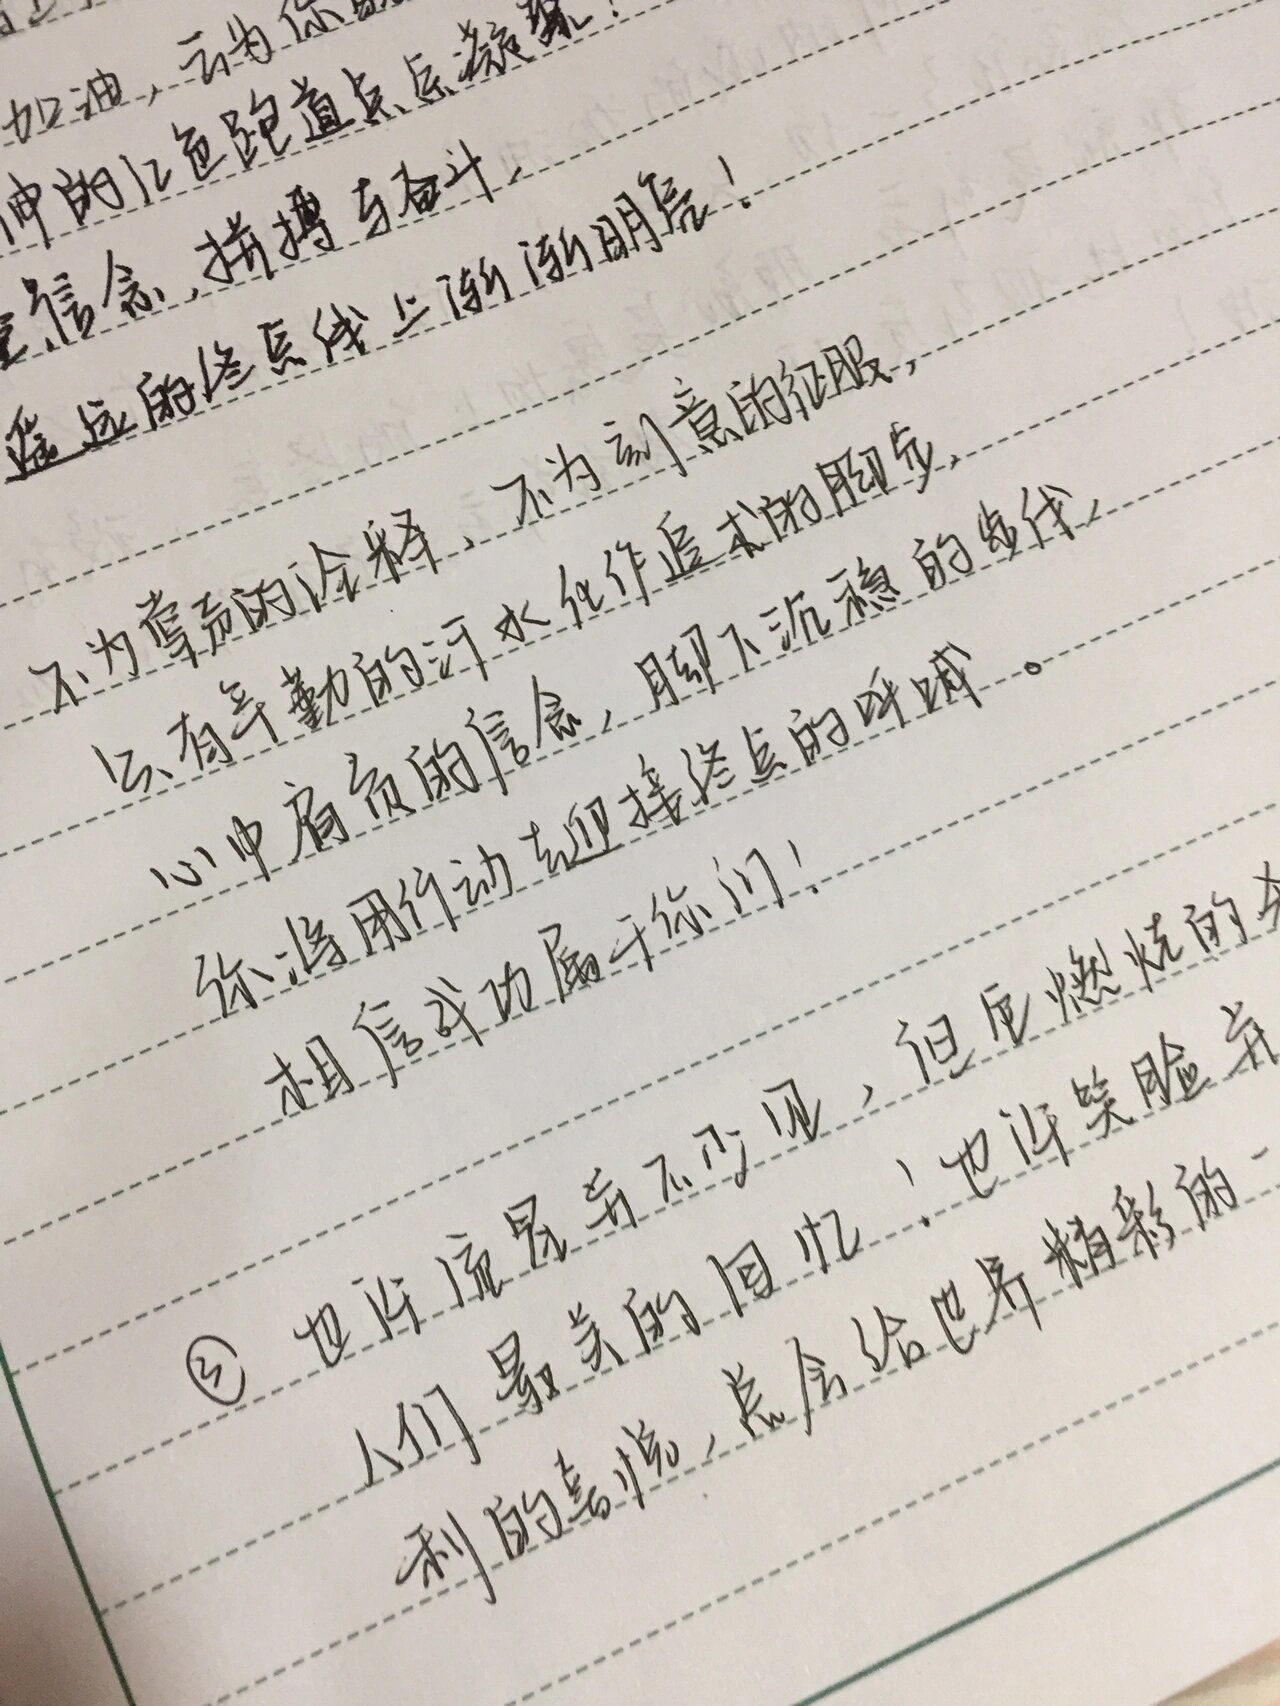 加油,云为你
伸的红色跑道点点凝聚!
信念,拼搏与奋斗,
遥远的终点线上渐渐明亮!
不为掌声的诠释,不为刻意的征服,
只有辛勤的汗水化作追求的脚步,
心中肩负的信念,脚下沉稳的步伐,
你将用行动去迎接终点的呼喊。
相信成功属于你们!
③ 也许流星并不少见,但它燃烧的
人们最美的回忆!也许笑脸并
利的喜悦,总会给世界精彩的一